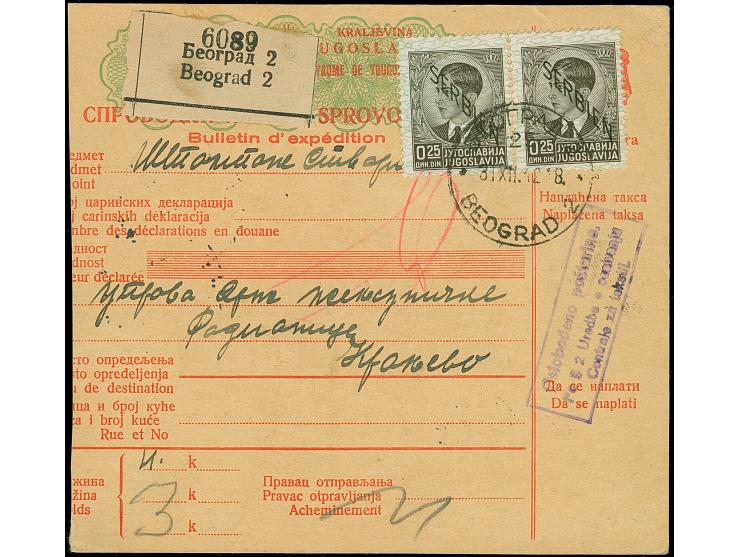 KRALJEVINA
UGOSLA
YAUME DE YOUGO
6089
Београд 2
Beograd 2
SERBIEN
SERBIEN
0.25 ЈУГОСЛАВИЈА
ДИН.DIN. JUGOSLAVIJA
0.25 ЈУГОСЛАВИЈА
ДИН.DIN. JUGOSLAVIJA
СПРО
SPROVO
Bulletin d'expédition
2
31 XII. 42 18.
BEOGRAD 2
едмет
edmet
oint
Наплаћена такса
Naplaćena taksa
ој царинских декларација
oj carinskih deklaracija
mbre des déclarations en douane
едност
ednost
eur déclarée
Oslobođeno poštarine,
po § 2 Uredbe o osnivanju
Centrale za tekstil.
Краљево
сто опредељења
sto opredeljenja
u de destination
ица и број куће
ca i broj kuće
Rue et No
Да се наплати
Da se naplati
жина
žina
oids
k
k
3 k
Правац отправљања
Pravac otpravljanja
Acheminement